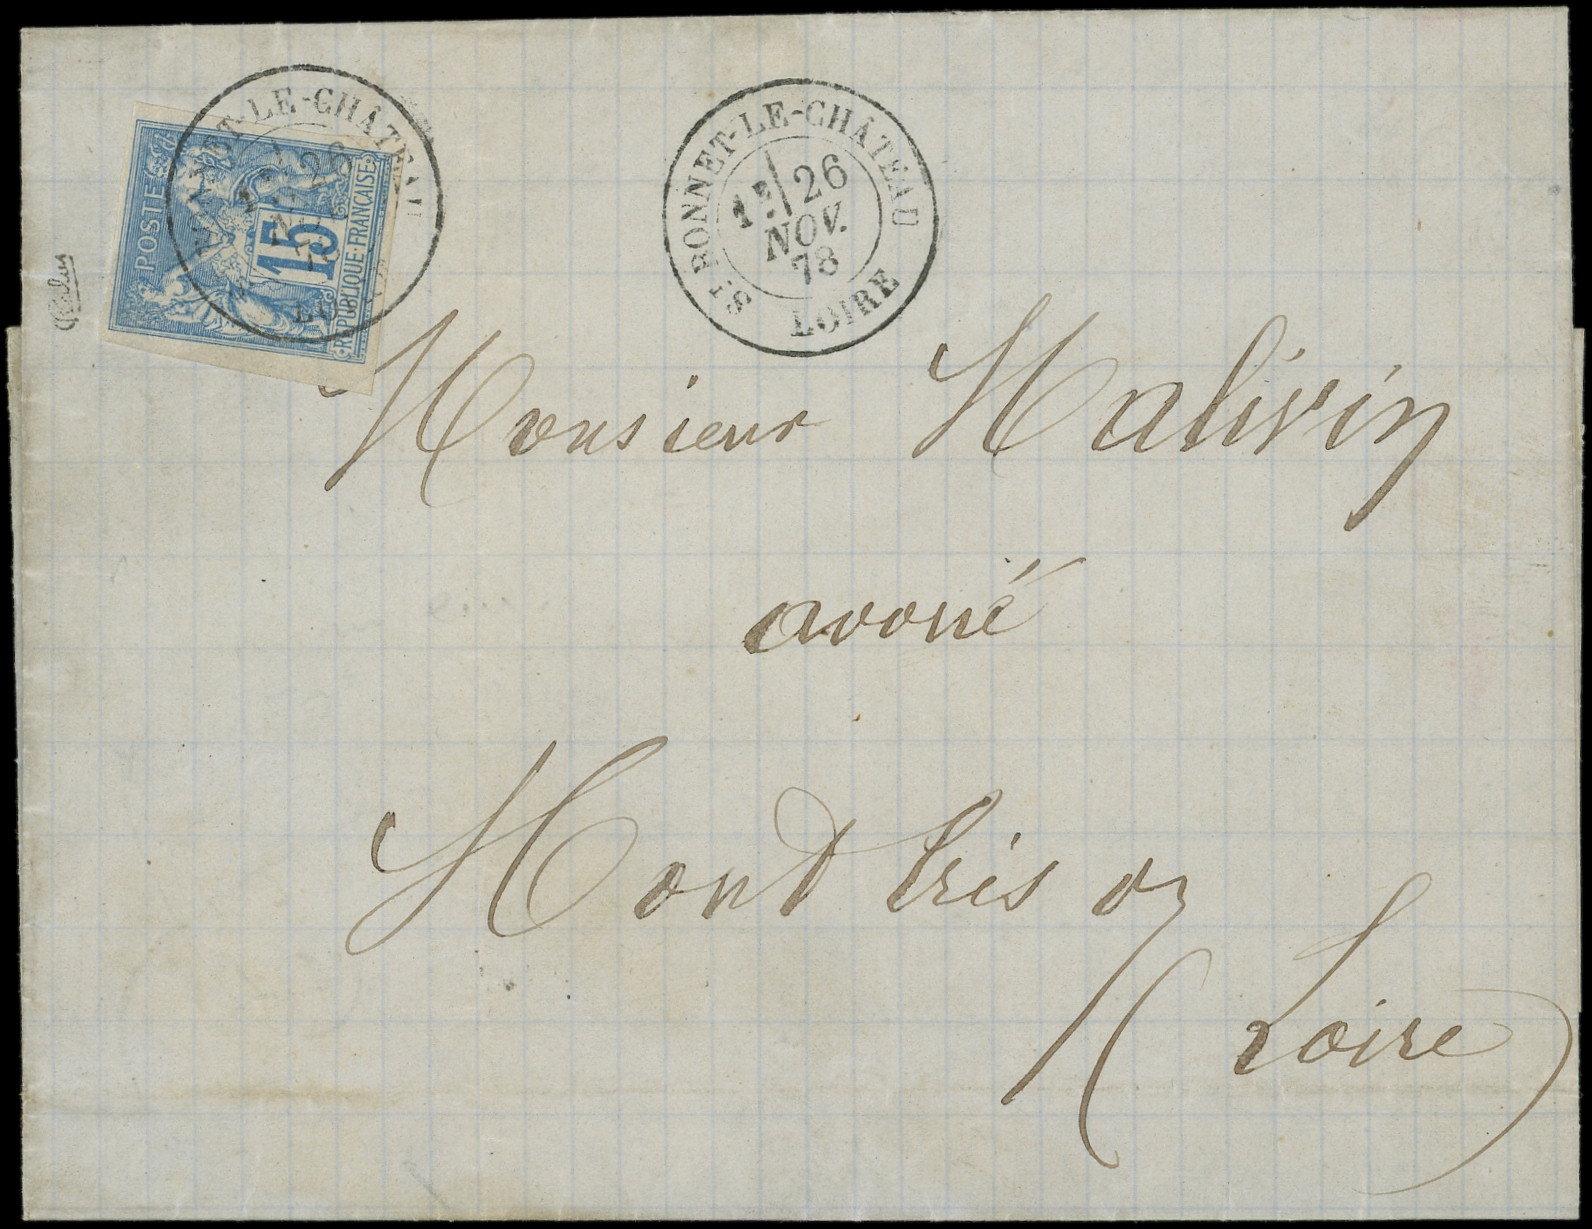 POSTE
15
REPUBLIQUE·FRANÇAISE
LE-CHÂTEAU
26
ST BONNET-LE-CHÂTEAU
1E 26
NOV.
78
LOIRE
Monsieur Malivin
avoué
Montbrison
(Loire)